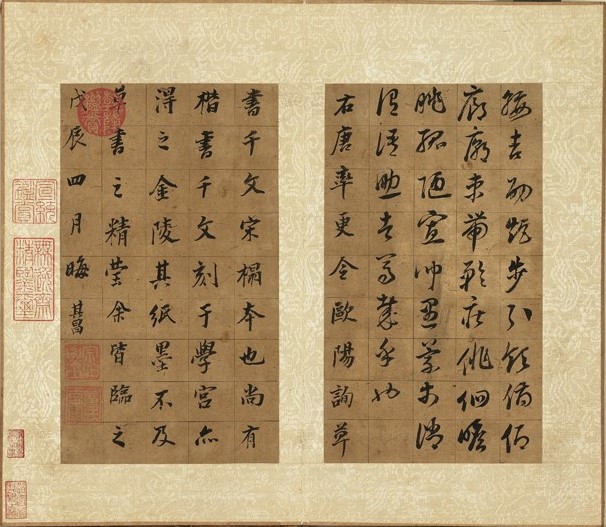 綏吉劭矩步引領俯仰
廊廟束帶矜莊徘徊瞻
眺孤陋寡聞愚蒙等誚
謂語助者焉哉乎也
右唐率更令歐陽詢草
書千文宋榻本也尚有
楷書千文刻于學宮亦
淂之金陵其紙墨不及
草書之精瑩余皆臨之
戊辰四月晦其昌
宣統鑑賞
無逸齋精鑑璽